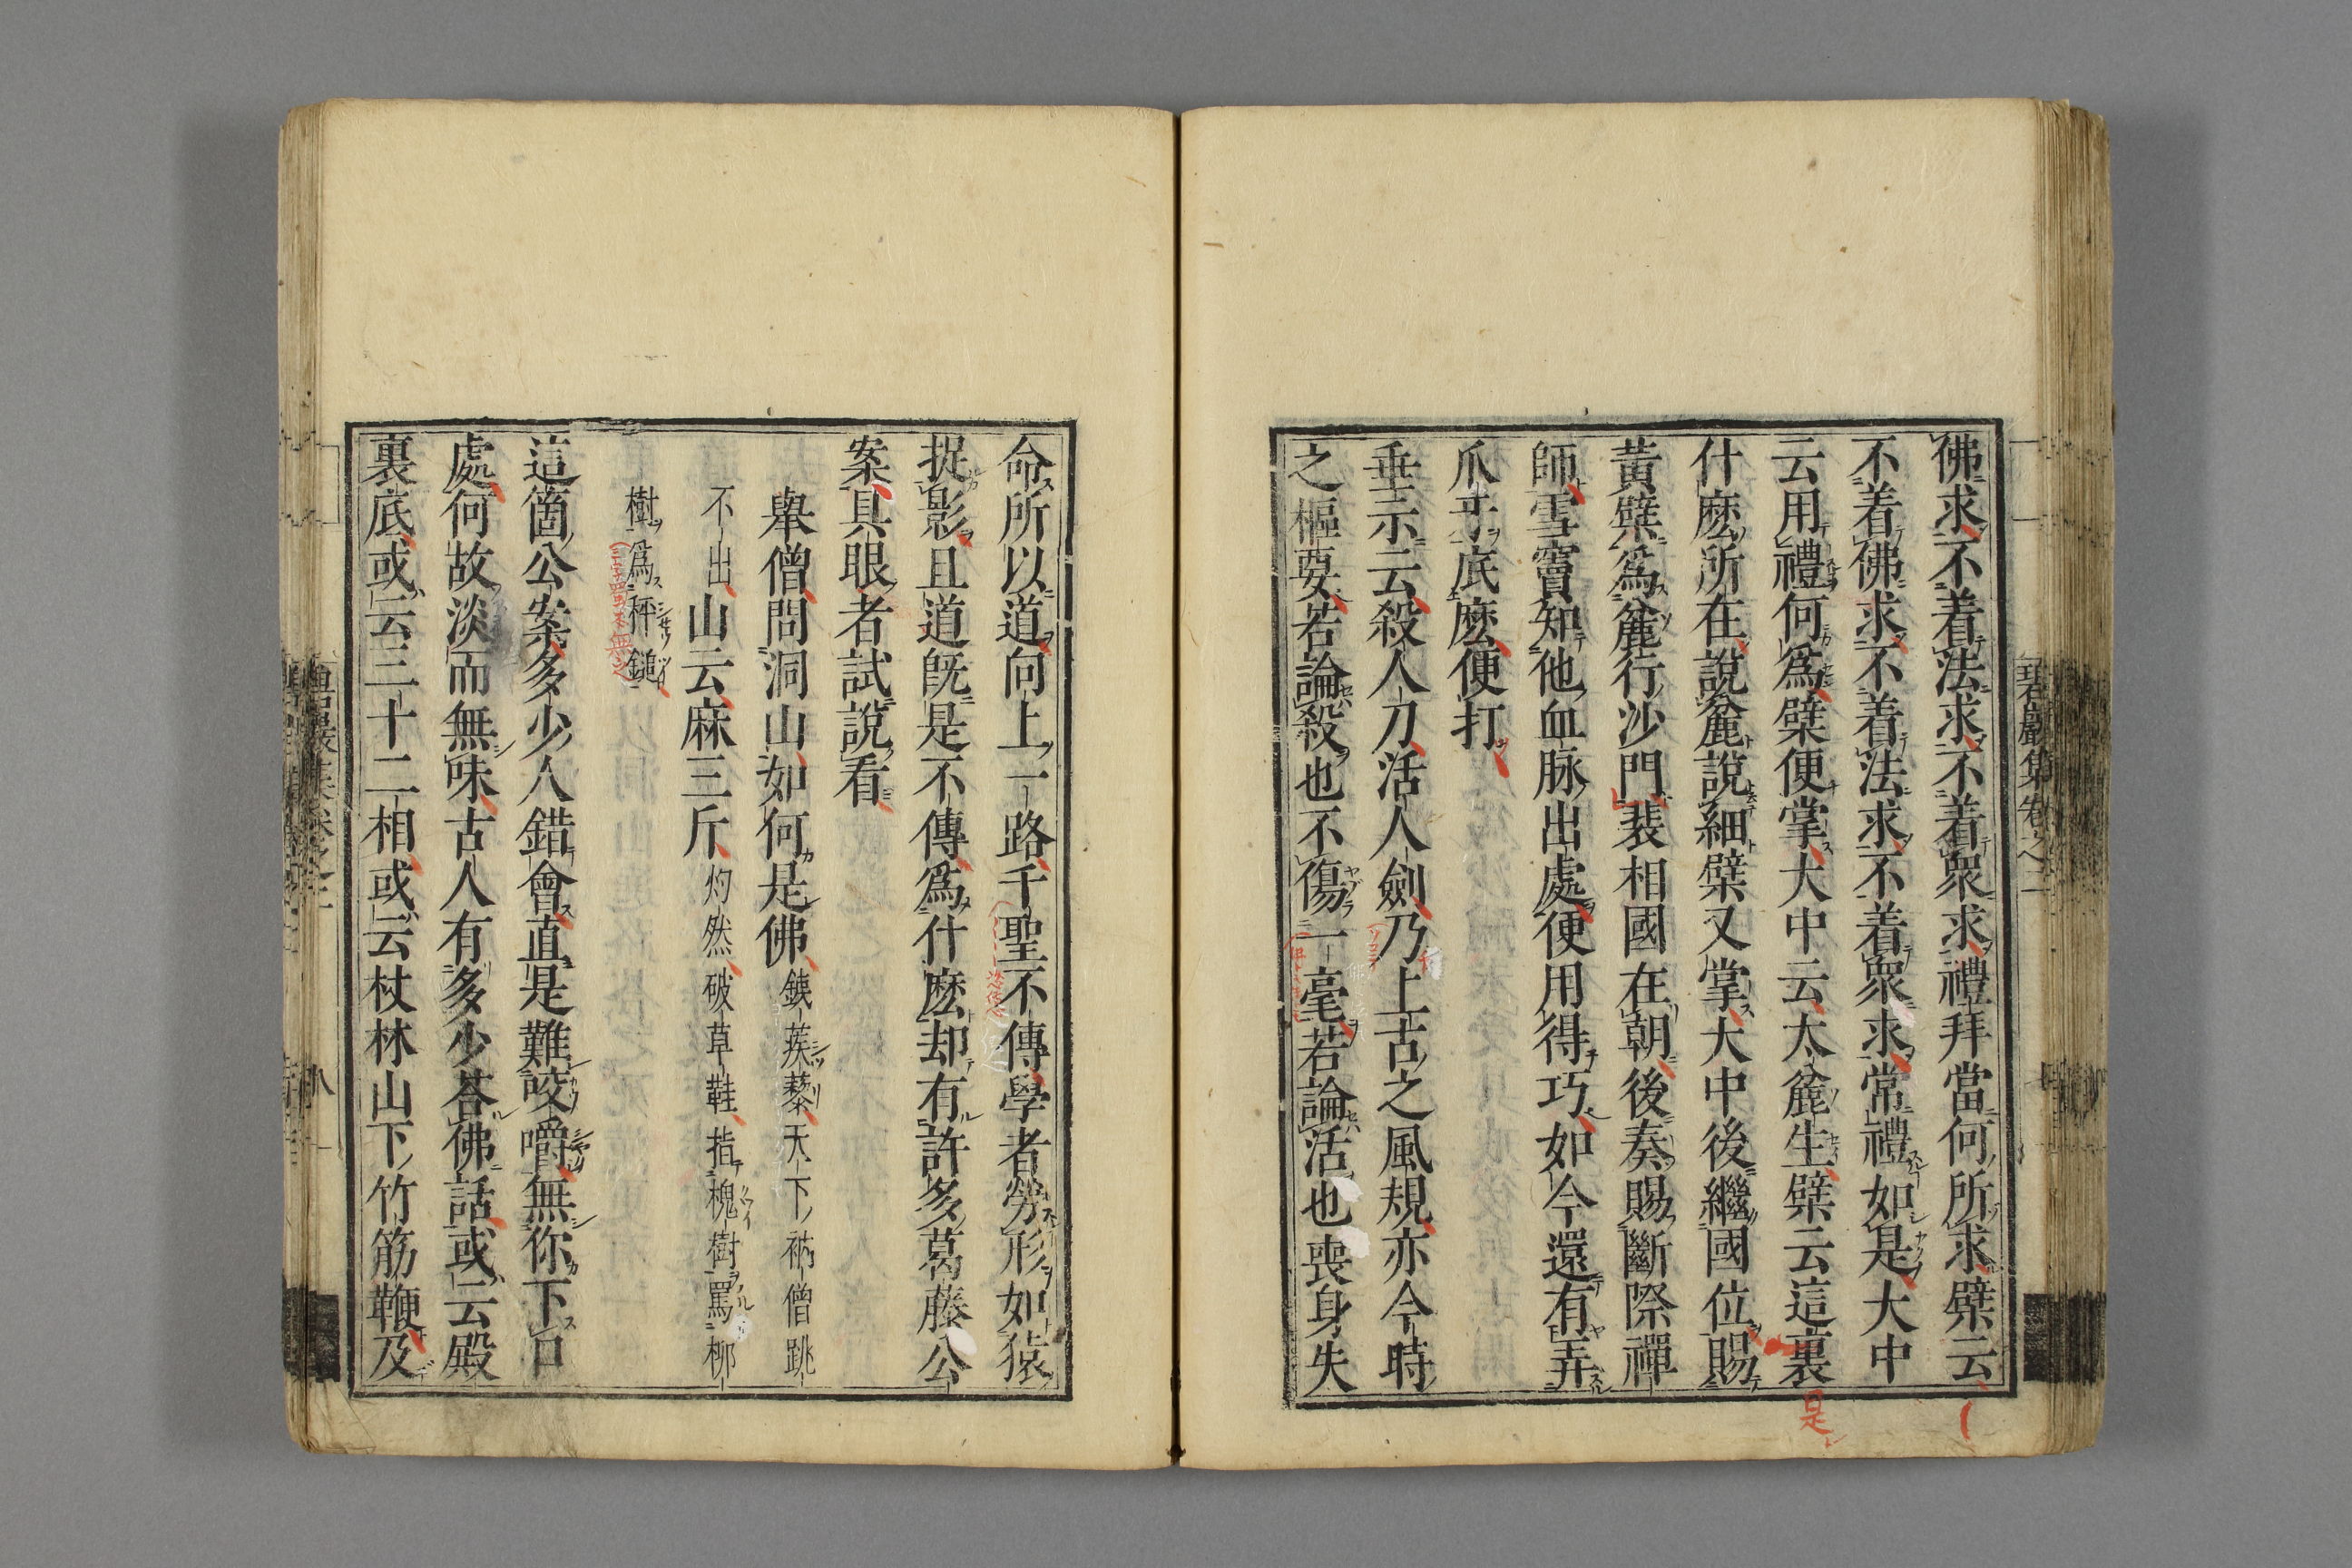 佛求不着法求不着衆求禮拜當何所求檗云
不着佛求不着法求不着衆求常禮如是大中
云用禮何爲檗便掌大中云太麁生檗云這裏
什麽所在說麁說細檗又掌大中後繼國位賜
黃檗爲麁行沙門裴相國在朝後奏賜斷際禪
師雪竇知他血脉出處便用得巧如今還有弄
爪牙底麽便打
垂示云殺人刀活人劍乃上古之風規亦今時
之樞要若論殺也不傷一毫若論活也喪身失
碧巖集卷之二
是
命所以道向上一路千聖不傳學者勞形如猿
捉影且道旣是不傳爲什麽却有許多葛藤公
案具眼者試說看
擧僧問洞山如何是佛鐵蒺藜天下衲僧跳
不出山云麻三斤灼然破草鞋指槐樹罵柳
樹爲秤鎚
這箇公案多少人錯會直是難咬嚼無你下口
處何故淡而無味古人有多少答佛話或云殿
裏底或云三十二相或云杖林山下竹筋鞭及